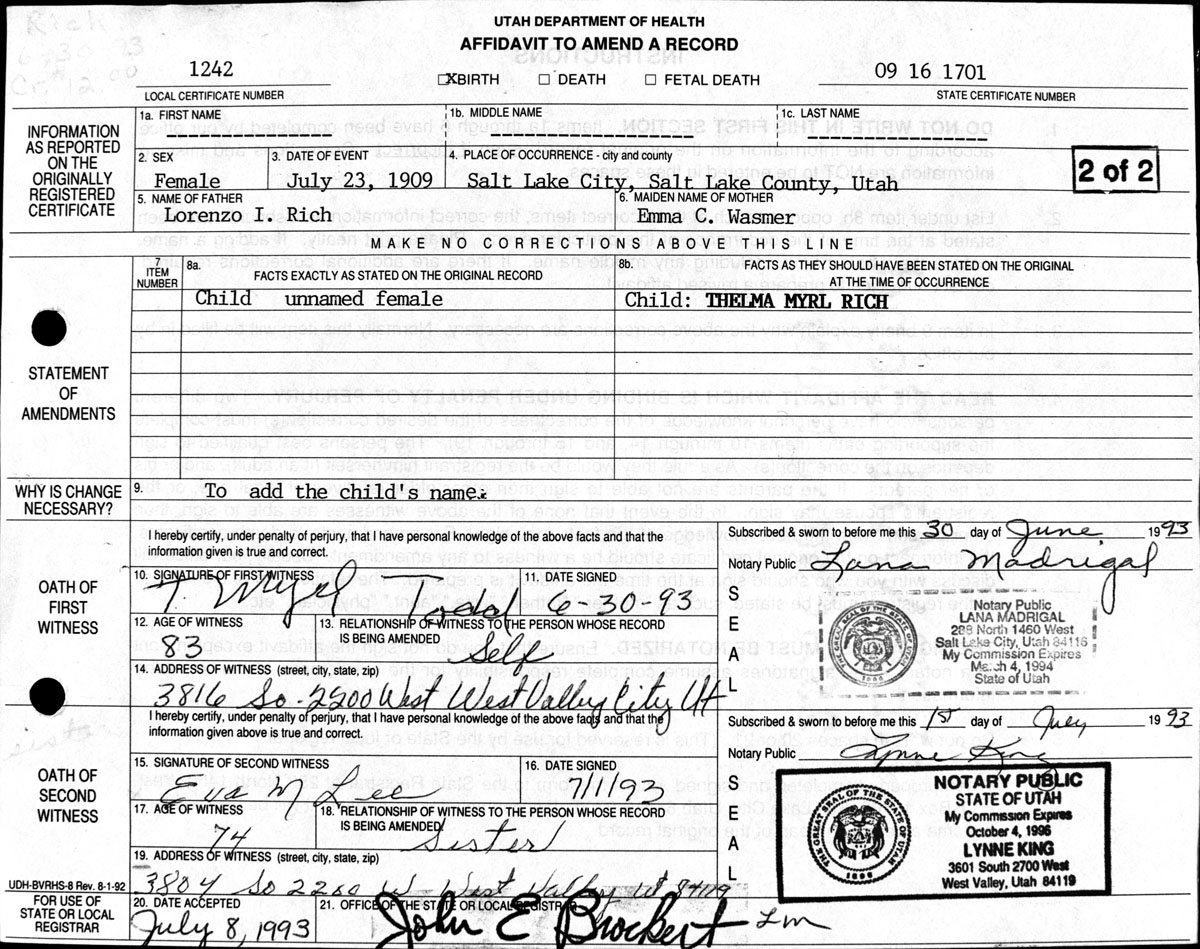 Rich
6-30-93
UTAH DEPARTMENT OF HEALTH
AFFIDAVIT TO AMEND A RECORD
1242
LOCAL CERTIFICATE NUMBER
☒ BIRTH ☐ DEATH ☐ FETAL DEATH
09 16 1701
STATE CERTIFICATE NUMBER
INFORMATION AS REPORTED ON THE ORIGINALLY REGISTERED CERTIFICATE
1a. FIRST NAME
1b. MIDDLE NAME
1c. LAST NAME
2. SEX
Female
3. DATE OF EVENT
July 23, 1909
4. PLACE OF OCCURRENCE - city and county
Salt Lake City, Salt Lake County, Utah
2 of 2
5. NAME OF FATHER
Lorenzo I. Rich
6. MAIDEN NAME OF MOTHER
Emma C. Wasmer
MAKE NO CORRECTIONS ABOVE THIS LINE
STATEMENT OF AMENDMENTS
7 ITEM NUMBER
8a. FACTS EXACTLY AS STATED ON THE ORIGINAL RECORD
8b. FACTS AS THEY SHOULD HAVE BEEN STATED ON THE ORIGINAL
AT THE TIME OF OCCURRENCE
Child unnamed female
Child: THELMA MYRL RICH
WHY IS CHANGE NECESSARY?
9. To add the child's name.
OATH OF FIRST WITNESS
I hereby certify, under penalty of perjury, that I have personal knowledge of the above facts and that the
information given is true and correct.
10. SIGNATURE OF FIRST WITNESS
T.
11. DATE SIGNED
6-30-93
12. AGE OF WITNESS
83
13. RELATIONSHIP OF WITNESS TO THE PERSON WHOSE RECORD
IS BEING AMENDED
Self
14. ADDRESS OF WITNESS (street, city, state, zip)
3816 So. 2200 West West Valley City UT
Subscribed & sworn to before me this 30 day of June, 1993
Notary Public Lana Madrigal
SEAL
Notary Public
LANA MADRIGAL
288 North 1460 West
Salt Lake City, Utah 84116
My Commission Expires
March 4, 1994
State of Utah
OATH OF SECOND WITNESS
I hereby certify, under penalty of perjury, that I have personal knowledge of the above facts and that the
information given above is true and correct.
15. SIGNATURE OF SECOND WITNESS
Eva M Lee
16. DATE SIGNED
7/1/93
17. AGE OF WITNESS
74
18. RELATIONSHIP OF WITNESS TO THE PERSON WHOSE RECORD
IS BEING AMENDED
Sister
19. ADDRESS OF WITNESS (street, city, state, zip)
3804 So 2200 W West Valley Ut 84119
Subscribed & sworn to before me this 1st day of July 1993
Notary Public Lynne King
SEAL
THE GREAT SEAL OF THE STATE OF UTAH
1896
NOTARY PUBLIC
STATE OF UTAH
My Commission Expires
October 4, 1996
LYNNE KING
3601 South 2700 West
West Valley, Utah 84119
UDH-BVRHS-8 Rev. 8-1-92
FOR USE OF STATE OR LOCAL REGISTRAR
20. DATE ACCEPTED
July 8, 1993
21. OFFICE OF THE STATE OR LOCAL REGISTRAR
John E Brockert Lm